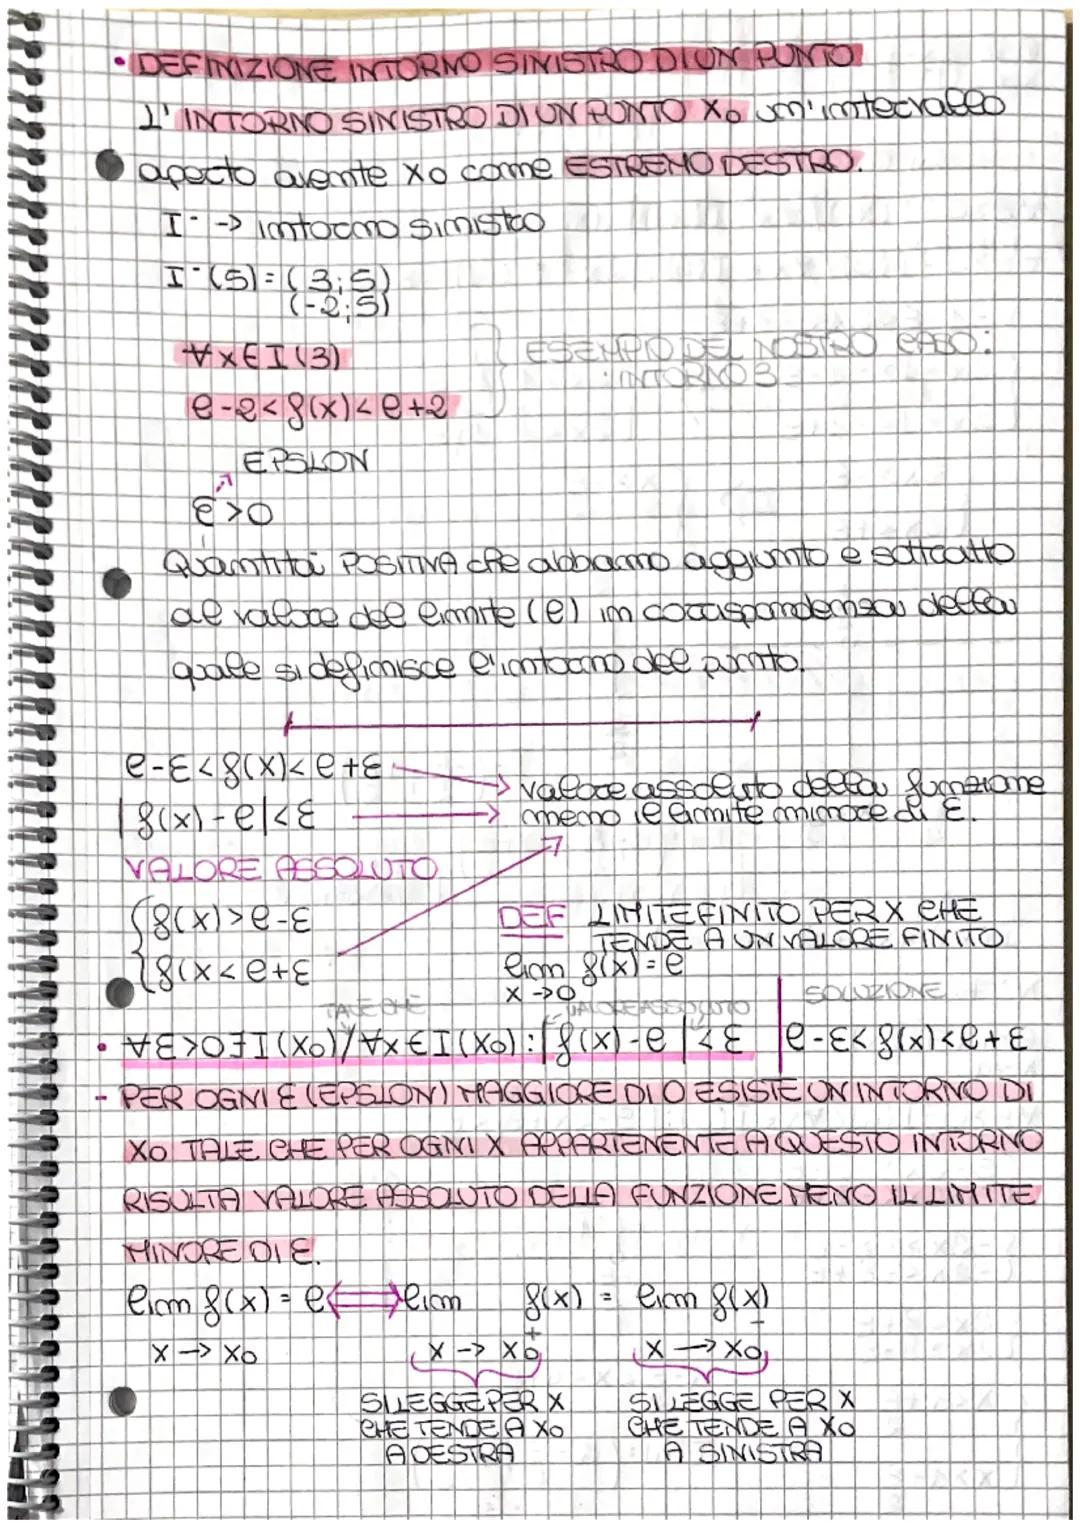 • DEFINIZIONE INTORNO SINISTRO DI UN PUNTO
L'INTORNO SINISTRO DI UN PUNTO X₀ un'intervallo
aperto avente x₀ come ESTREMO DESTRO.
I⁻ -> intorno sinistro
I⁻(5) = (3;5)
(-2;5)
∀x∈I(3)
ESEMPIO DEL NOSTRO CASO:
INTORNO 3
l-2<f(x)<l+2
EPSLON
ε>0
Quantità POSITIVA che abbiamo aggiunto e sottratto
al valore del limite (l) in corrispondenza della
quale si definisce l'intorno del punto.
l-ε<f(x)<l+ε
valore assoluto della funzione
|f(x)-l|<ε
meno il limite minore di ε.
VALORE ASSOLUTO
f(x)>l-ε
DEF LIMITE FINITO PER X CHE
TENDE A UN VALORE FINITO
f(x<l+ε
lim f(x)=l
x->0
TALE CHE
VALORE ASSOLUTO
SOLUZIONE
• ∀ε>0∃I(x₀)/∀x∈I(x₀):|f(x)-l|<ε | l-ε<f(x)<l+ε
- PER OGNI ε (EPSLON) MAGGIORE DI 0 ESISTE UN INTORNO DI
X₀ TALE CHE PER OGNI X APPARTENENTE A QUESTO INTORNO
RISULTA VALORE ASSOLUTO DELLA FUNZIONE MENO IL LIMITE
MINORE DI ε.
lim f(x) = l <=> lim f(x) = lim f(x)
x -> x₀ x -> x₀⁺ x -> x₀⁻
SI LEGGE PER X SI LEGGE PER X
CHE TENDE A X₀ CHE TENDE A X₀
A DESTRA A SINISTRA